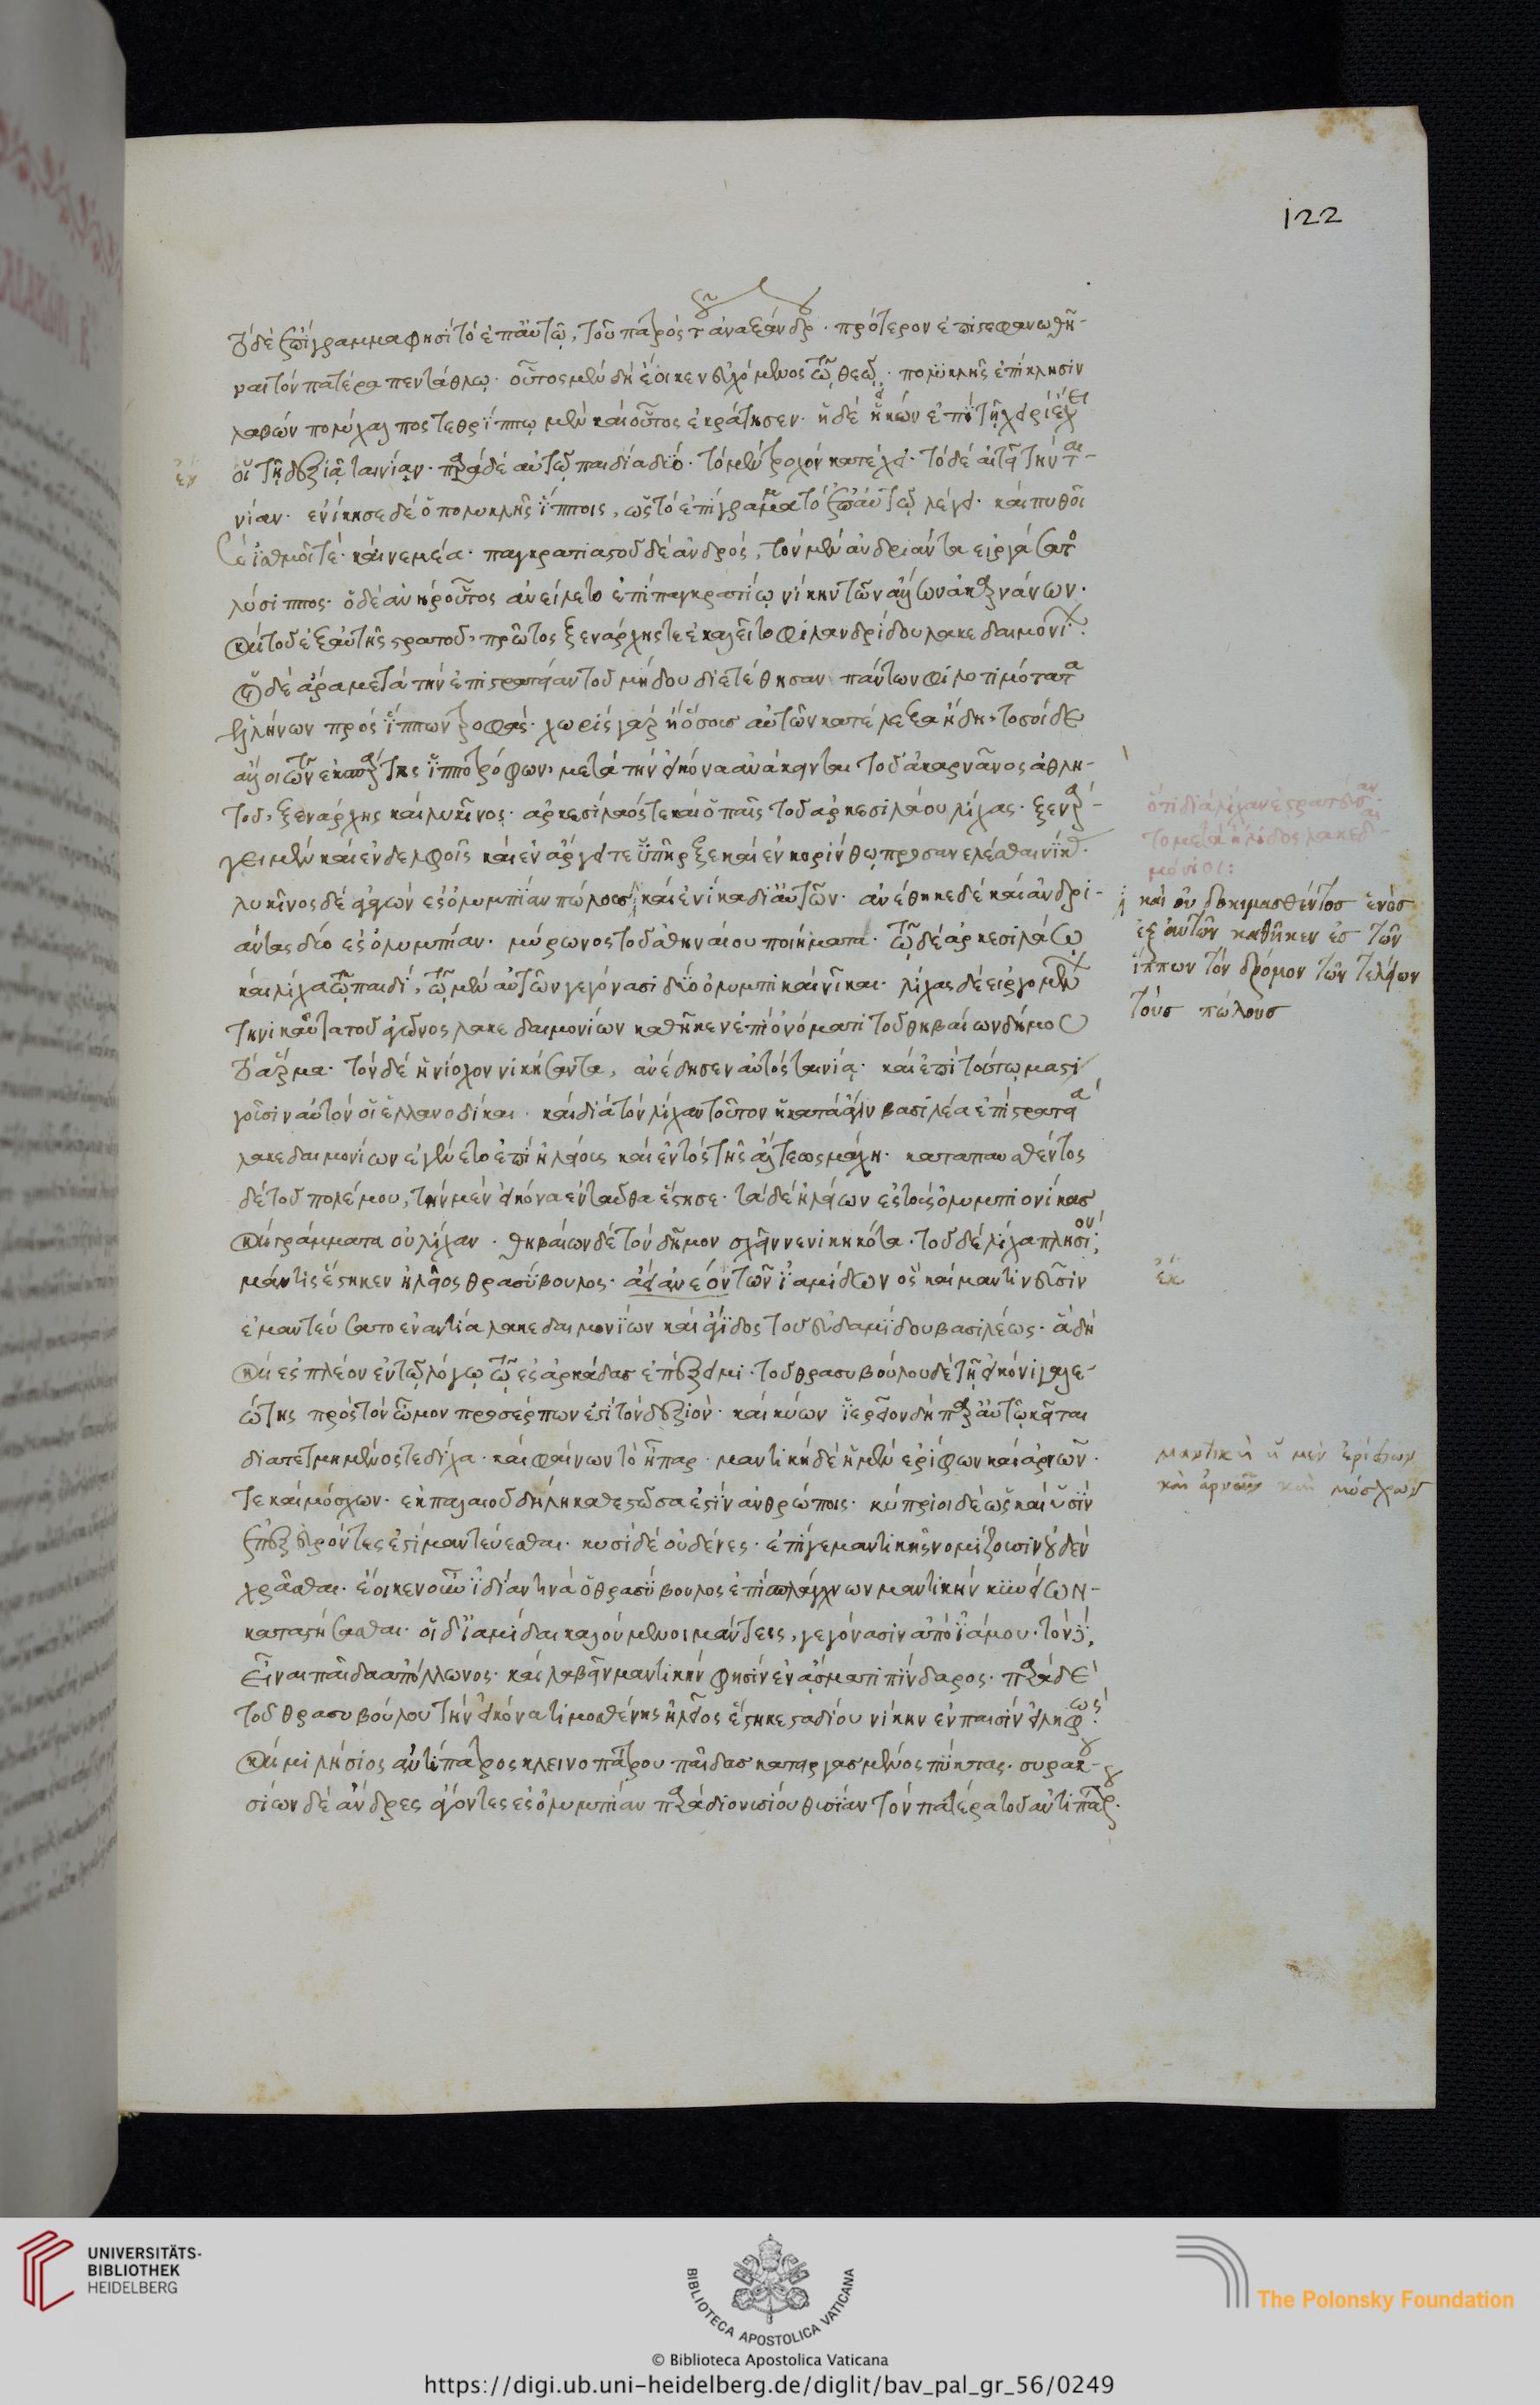 122
τὸ δὲ ἐπίγραμμα φησὶ τὸ ἐπ' αὐτῷ, τοῦ πατρὸς τοῦ ἀναξάνδρου · πρότερον ἔτι στεφανωθῆ-
ναι τὸν πατέρα πεντάθλῳ · οὗτος μὲν δὴ ἔοικεν εὐχόμενος τῷ θεῷ · πολυκλῆς ἐπίκλησιν
λαβὼν πολύχαλκος τεθρίππῳ μὲν καὶ οὗτος ἐκράτησεν · ἡ δὲ εἰκὼν ἐπὶ τῇ χειρὶ ἔχει
οἱ τῇ δεξιᾷ ταινίαν · παρὰ δὲ αὐτῷ παιδία δύο · τὸ μὲν τροχὸν κατέχει · τὸ δὲ αἰτεῖ τὴν ται-
νίαν · ἐνίκησε δὲ ὁ πολυκλῆς ἵπποις, ὡς τὸ ἐπίγραμμα τὸ ἐπ' αὐτῷ λέγει · καὶ πυθοῖ
καὶ ἰσθμοῖ τέ · καὶ νεμέα · παγκρατιαστοῦ δὲ ἀνδρός, τὸν μὲν ἀνδριάντα εἰργάσατο
λύσιππος · ὁ δὲ ἀνὴρ οὗτος ἀνείλετο ἐπὶ παγκρατίῳ νίκην τῶν ἄλλων ἀκαρνάνων ·
καὶ τοῦ ἐξ αὐτῆς πρῶτος ξενάρχης τε ἐκαλεῖτο φιλανδρίδου λακεδαιμόνιοι
δὲ ἄρα μετὰ τὴν ἐπιστρατείαν τοῦ μήδου διετέθησαν πάντων φιλοτιμότατα
ἑλλήνων πρὸς ἵππων τροφάς · χωρὶς γὰρ ἢ ὅσους αὐτῶν κατέλεξα ἤδη, τοσοίδε
ἄλλοι τῶν ἐκ σπάρτης ἱπποτρόφων, μετὰ τὴν εἰκόνα ἀνάκεινται τοῦ ἀκαρνᾶνος ἀθλη-
τοῦ, ξενάρχης καὶ λυκῖνος · ἀρκεσίλαός τε καὶ ὁ παῖς τοῦ ἀρκεσιλάου λίχας · ξενάρ-
χει μὲν καὶ ἐν δελφοῖς καὶ ἐν ἄργει τε ὑπῆρξε καὶ ἐν κορίνθῳ προσανελέσθαι νίκας
λυκῖνος δὲ ἀγαγὼν ἐς ὀλυμπίαν πώλους καὶ ἐνίκα δι' αὐτῶν · ἀνέθηκε δὲ καὶ ἀνδρι-
άντας δύο ἐς ὀλυμπίαν · μύρωνος τοῦ ἀθηναίου ποιήματα · τῷ δὲ ἀρκεσιλάῳ
καὶ λίχα τῷ παιδί, τῷ μὲν αὐτῶν γεγόνασι δύο ὀλυμπικαὶ νῖκαι · λίχας δὲ εἰργομένων
τηνικαῦτα τοῦ ἀγῶνος λακεδαιμονίων καθῆκεν ἐπὶ ὀνόματι τοῦ θηβαίων δήμου
τὸ ἅρμα · τὸν δὲ ἡνίοχον νικήσαντα, ἀνέδησεν αὐτὸς ταινίᾳ · καὶ ἐπὶ τούτῳ μαστι-
γοῦσιν αὐτὸν οἱ ἑλλανοδίκαι · καὶ διὰ τὸν λίχαν τοῦτον ἡ κατὰ ἆγιν βασιλέα ἐπιστρατεία
λακεδαιμονίων ἐγένετο ἐπὶ ἠλείους καὶ ἐντὸς τῆς ἄλτεως μάχη · καταπαυσθέντος
δὲ τοῦ πολέμου, τὴν μὲν εἰκόνα ἐνταῦθα ἔστησε · τὰ δὲ ἠλείων ἐς τοὺς ὀλυμπιονίκας
γράμματα οὐ λίχαν · θηβαίων δὲ τὸν δῆμον ἔχει νενικηκότα · τοῦ δὲ λίχα πλησίον
μάντις ἕστηκεν ἠλεῖος θρασύβουλος · τῶν ἰαμιδῶν ὃς καὶ μαντινεῦσιν
ἐμαντεύσατο ἐναντία λακεδαιμονίων καὶ ἄγιδος τοῦ εὐδαμίδου βασιλέως · ἃ δὴ
καὶ ἐς πλέον ἐν τῷ λόγῳ τῷ ἐς ἀρκάδας ἐπέξειμι · τοῦ θρασυβούλου δὲ τῇ εἰκόνι γαλε-
ώτης πρὸς τὸν ὦμον προσέρπων ἐστὶ τὸν δεξιόν · καὶ κύων ἱερεῖον δὴ παρ' αὐτῷ κεῖται
διατετμημένος τε δίχα · καὶ φαίνων τὸ ἧπαρ · μαντικὴ δὲ ἡ μὲν ἐρίφων καὶ ἀρνῶν ·
τε καὶ μόσχων · ἐκ παλαιοῦ δήλη καθεστῶσα ἐστὶν ἀνθρώποις · κύπριοι δὲ ὡς καὶ ὑσὶν
ἐπεξευρόντες ἐστὶ μαντεύεσθαι · κυσὶ δὲ οὐδένες · ἐπί γε μαντικῆς νομίζουσιν οὐδὲν
χρᾶσθαι · ἔοικεν οὖν ἰδίαν τινὰ ὁ θρασύβουλος ἐπὶ σπλάγχνων μαντικὴν κυνείων ·
καταστήσασθαι · οἱ δ' ἰαμίδαι καλούμενοι μάντεις, γεγόνασιν ἀπὸ ἰάμου · τὸν
εἶναι παῖδα ἀπόλλωνος · καὶ λαβεῖν μαντικὴν φησὶν ἐν ᾄσματι πίνδαρος · παρὰ δὲ
τοῦ θρασυβούλου τὴν εἰκόνα τιμοσθένης ἠλεῖος ἕστηκε σταδίου νίκην ἐν παισὶν εἰληφώς
καὶ μιλήσιος ἀντίπατρος κλεινοπάτρου παῖδας κατειργασμένος πύκτας · συρακου-
σίων δὲ ἄνδρες ἄγοντες ἐς ὀλυμπίαν παρὰ διονυσίου θυσίαν τὸν πατέρα τοῦ ἀντιπάτρου
καὶ οὐ δοκιμασθέντος ἑνὸς
ἐξ αὐτῶν καθῆκεν ἐς τῶν
ἵππων τὸν δρόμον τῶν τελείων
τοὺς πώλους
μαντικὴ ἡ μὲν ἐρίφων
καὶ ἀρνῶν καὶ μόσχων
UNIVERSITÄTS-
BIBLIOTHEK
HEIDELBERG
BIBLIOTECA APOSTOLICA VATICANA
The Polonsky Foundation
© Biblioteca Apostolica Vaticana
https://digi.ub.uni-heidelberg.de/diglit/bav_pal_gr_56/0249